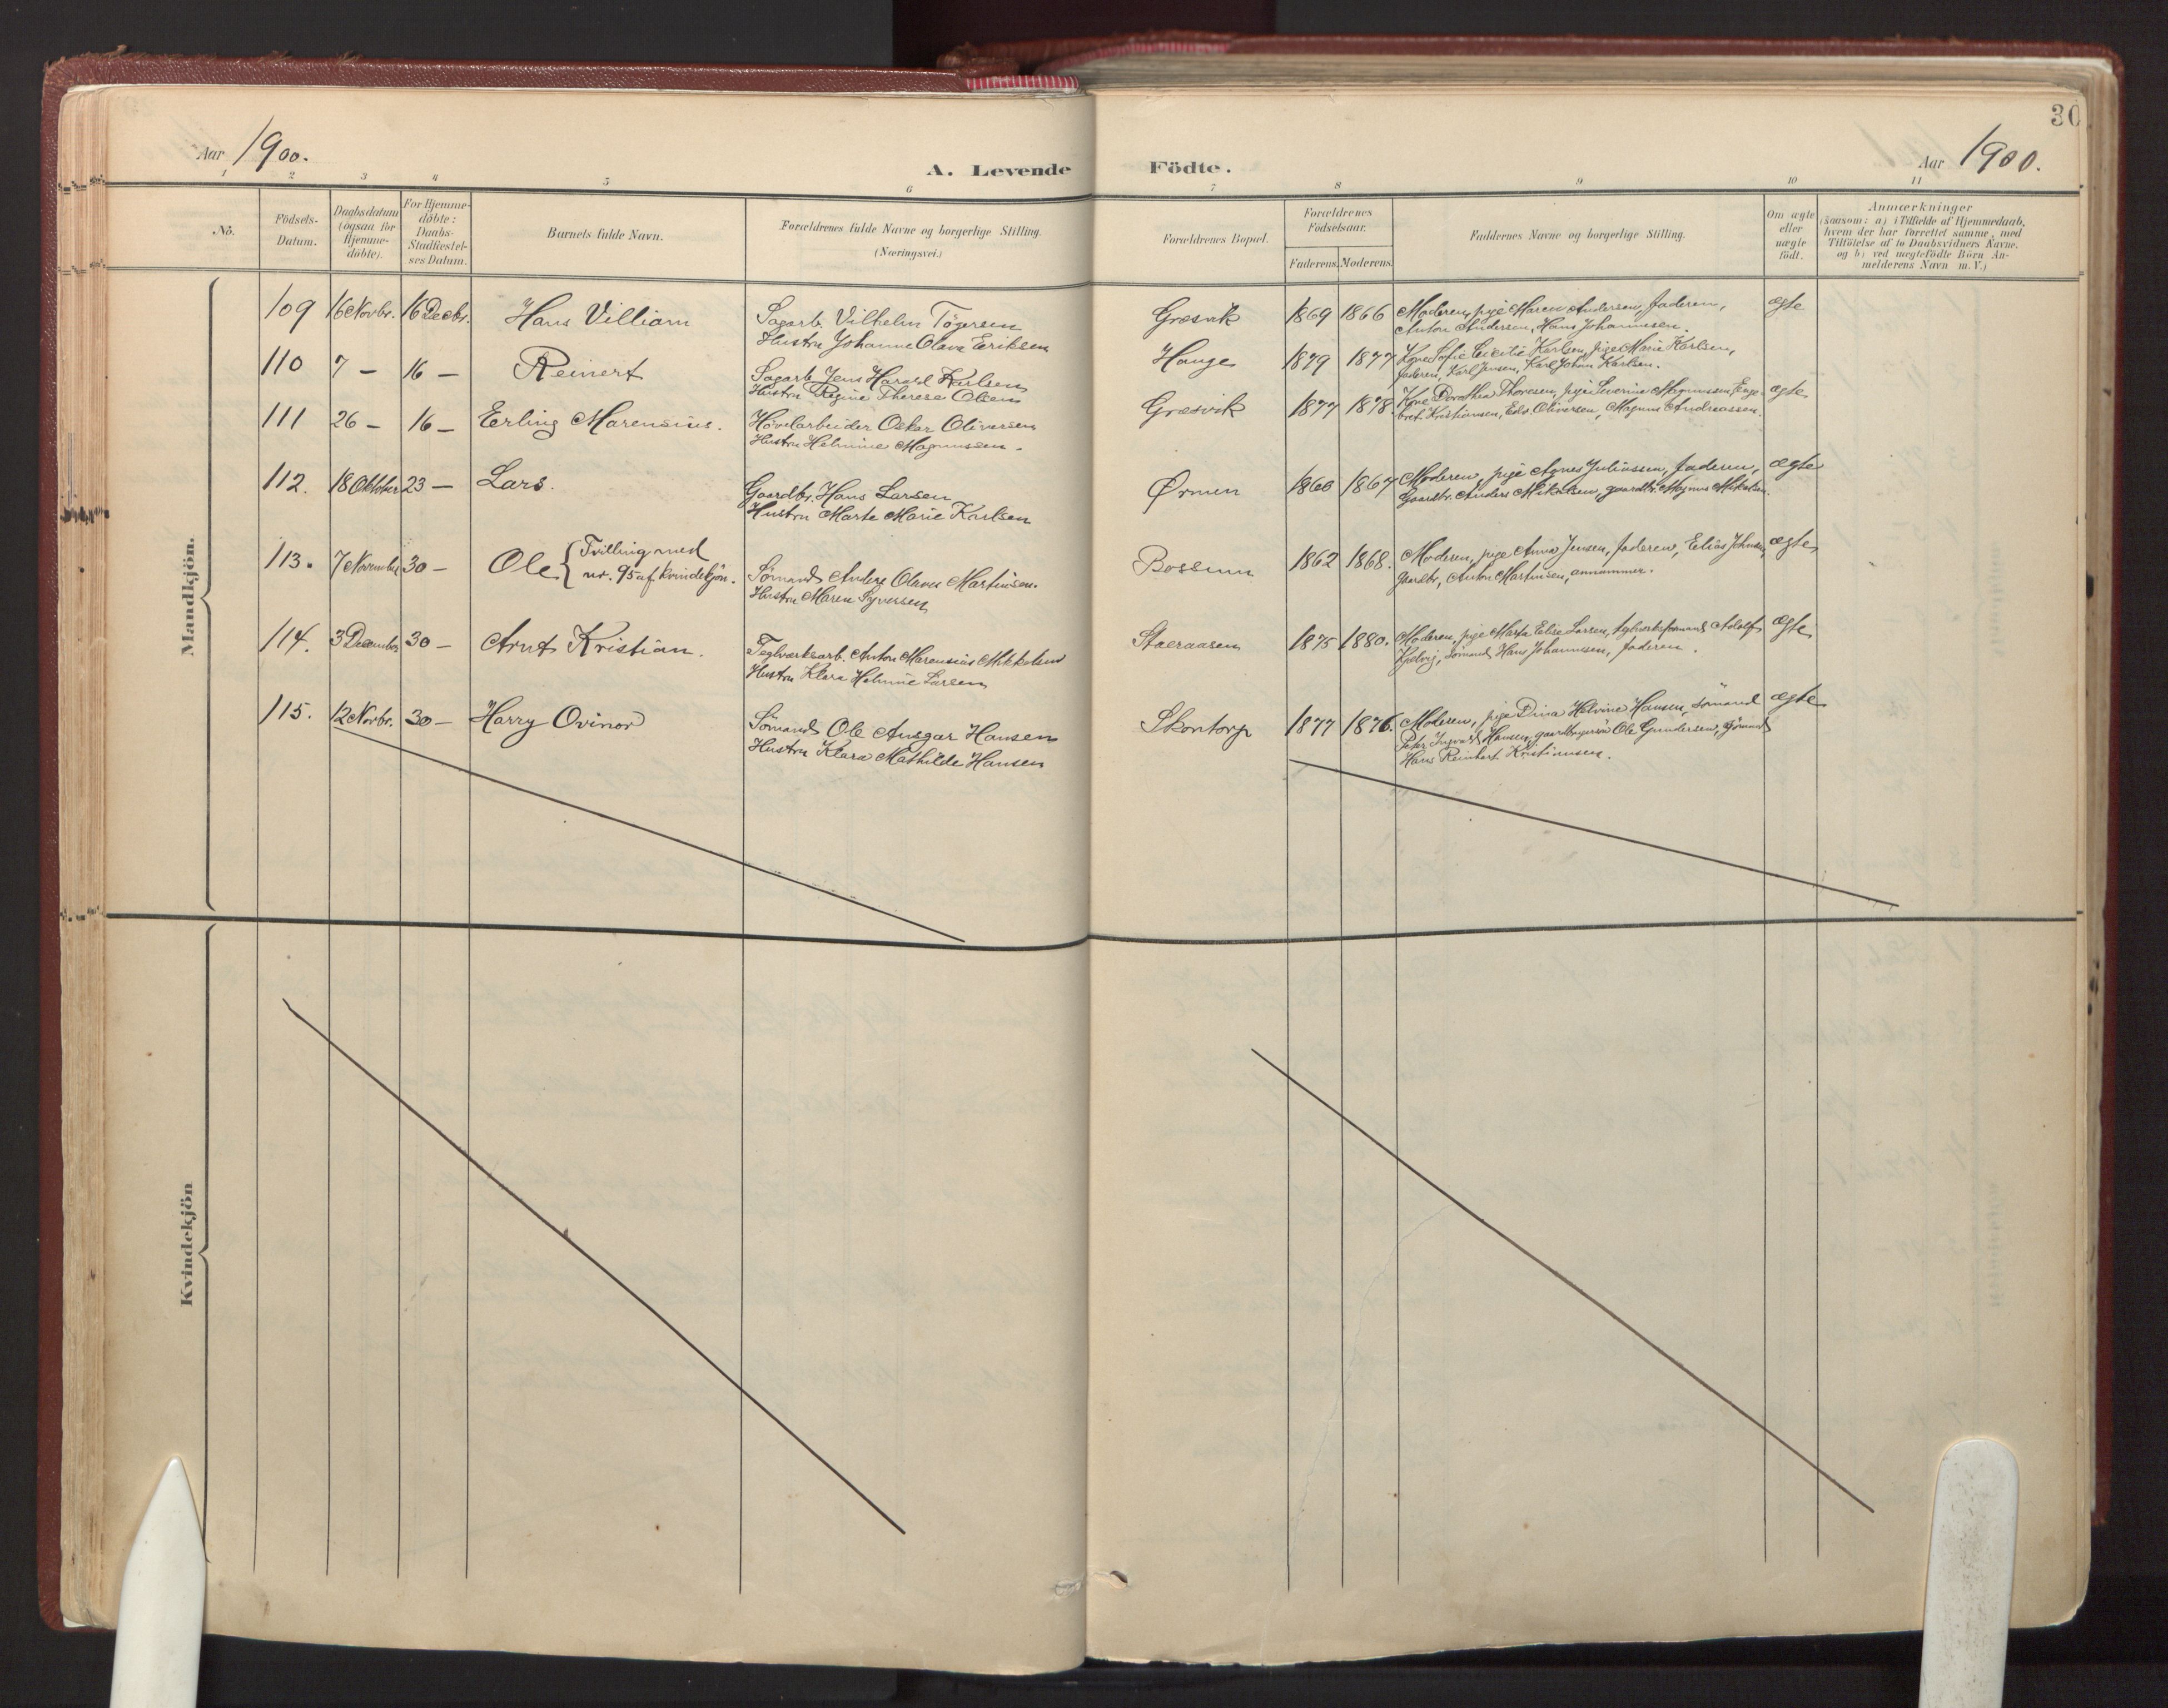 30
Aar 1900.
A. Levende Födte.
Aar 1900.
1 2 3 4 5 6 7 8 9 10 11
Nö.
Födsels-
Datum.
Daabsdatum
(ogsaa for
Hjemme-
døbte).
For Hjemme-
döbte:
Daabs-
Stadfæstel-
ses Datum.
Barnets fulde Navn.
Forældrenes fulde Navne og borgerlige Stilling.
(Næringsvei.)
Forældrenes Bopæl.
Forældrenes
Födselsaar.
Faderens. Moderens.
Faddernes Navne og borgerlige Stilling.
Om ægte
eller
uægte
født.
Anmærkninger
(saasom: a) i Tilfælde af Hjemmedaab,
hvem der har forrettet samme, med
Tilföielse af to Daabsvidners Navne.
og b) ved uægtefödte Börn An-
melderens Navn m. V.)
Mandkjön.
109 16 Novbr. 16 Decbr. Hans Villiam
Sagarb. Vilhelm Tögersen
Hustru Johanne Olava Eriksen
Græsvik 1869 1866
Moderen, pige Maren Andersen, Faderen,
Anton Andersen, Hans Johannesen.
ægte
110 7 — 16 — Reinert
Sagarb. Jens Harald Karlsen
Hustru Regine Therese Olsen
Hauge 1879 1877
Kone Sofie Karlsen, pige Marie Karlsen,
Faderen, Karl Jensen, Karl Johan Karlsen.
111 26 — 16 — Erling Marensius.
Hövelarbeider Oskar Oliversen
Hustru Helmine Magnussen.
Græsvik 1877 1878.
Kone Dorothea Thoresen, pige Severine Magnussen, Enge-
bret Kristiansen, Edv. Oliversen, Magnus Andreassen.
ægte
112. 18 Oktober 23 — Lars.
Gaardbr. Hans Larsen
Hustru Marte Marie Karlsen
Ørmen 1867
Moderen, pige Agnes Juliussen, Faderen,
Gaardbr. Anders Mikalsen, gaardbr. Magnus Mikalsen.
ægte
113. 7 November 30 — Ole { Tvilling med
nr. 95 af kvindekjön.
Sömand Anders Olaus Martinsen.
Hustru Maren Syversen
Bossum 1862 1868.
Moderen, pige Anna Jensen, Faderen, Elias Johnsen,
gaardbr. Anton Martinsen,
ægte
114. 3 December 30 — Arnt Kristian.
Teglverksarb. Anton Marensius Mikkelsen
Hustru Klara Helmine Larsen
1875 1880.
Moderen, pige Marta Elise Larsen, Adolf
Kjölvig, sömand Hans Johannesen, Faderen.
ægte
115. 12 Novbr. 30 — Harry Ovinor
Sömand Ole Ansgar Hansen
Hustru Klara Mathilde Hansen
Skontorp 1877 1876.
Moderen, pige Dina Helvine Hansen, sömand
Peter Ingvald Hansen, Ole Gundersen, sömand
Hans Reinhart Kristiansen.
ægte
Kvindekjön